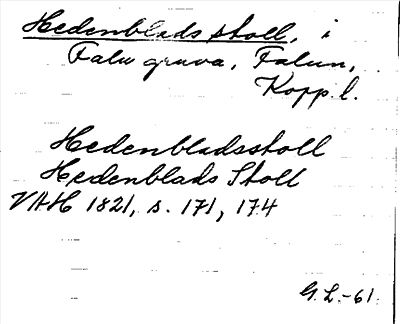 Hedenblads stoll, i
Falu gruva, Falun,
Kopp. l.
Hedenbladsstoll
Hedenblads Stoll
VAH 1821, s. 171, 174
G. L. -61.